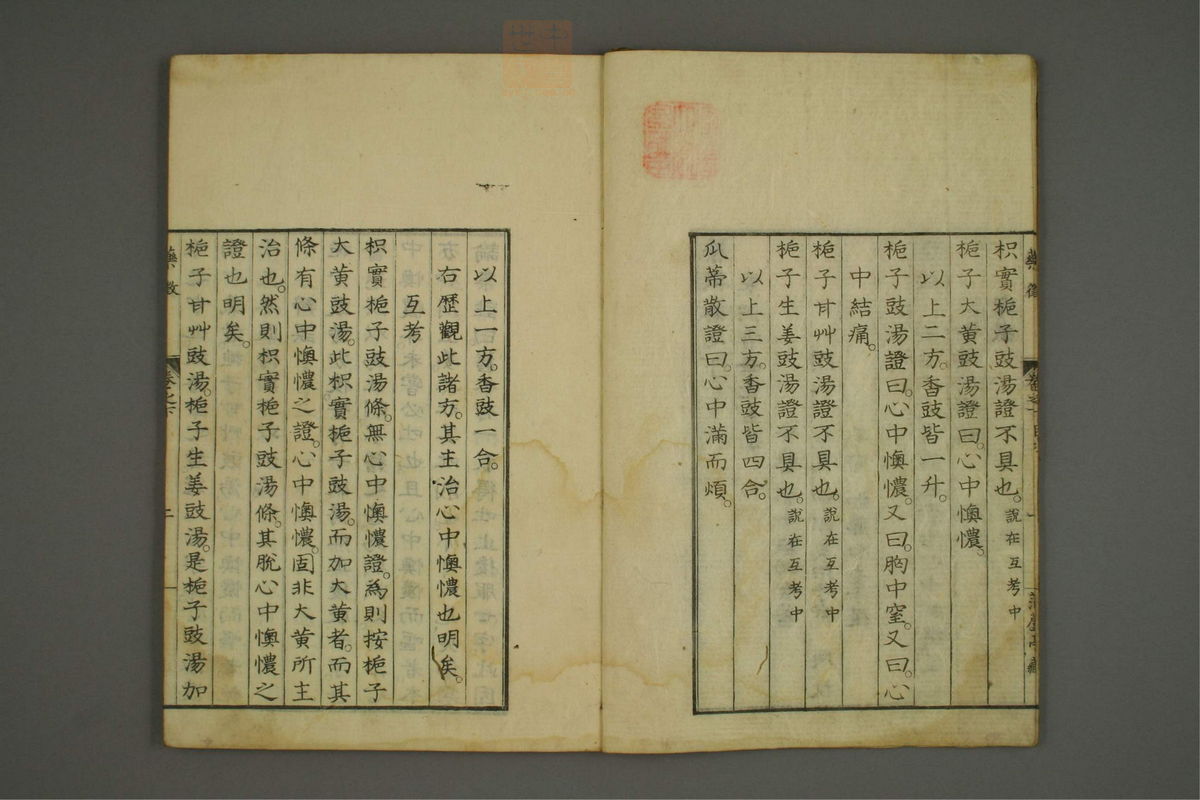 枳實梔子豉湯證不具也。說在互考中
梔子大黃豉湯證曰。心中懊憹。
以上二方。香豉皆一升。
梔子豉湯證曰。心中懊憹。又曰。胸中窒。又曰。心
中結痛。
梔子甘艸豉湯證不具也。說在互考中
梔子生姜豉湯證不具也。說在互考中
以上三方。香豉皆四合。
瓜蒂散證曰。心中滿而煩。
以上一方。香豉一合。
右歷觀此諸方。其主治心中懊憹也明矣。
互考
枳實梔子豉湯條。無心中懊憹證。為則按梔子
大黃豉湯。此枳實梔子豉湯。而加大黃者。而其
條有心中懊憹之證。心中懊憹。固非大黃所主
治也。然則枳實梔子豉湯條。其脫心中懊憹之
證也明矣。
梔子甘艸豉湯。梔子生姜豉湯。是梔子豉湯加